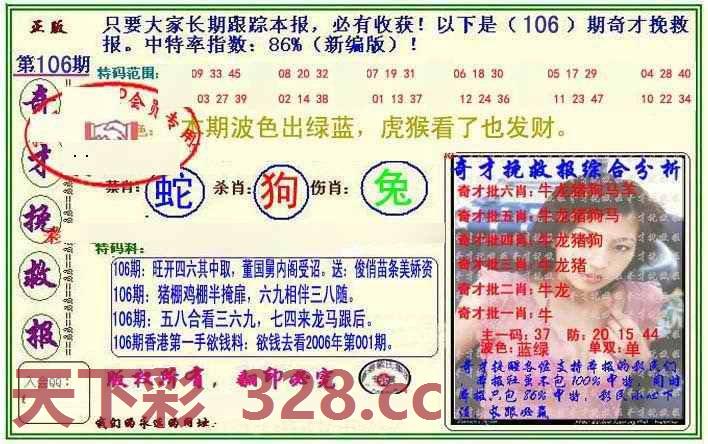 正版
只要大家长期跟踪本报，必有收获！以下是（106）期奇才挽救
报。中特率指数：86%（新编版）！
第106期
特码范围：
09 33 45
08 20 32
07 19 31
06 18 30
05 17 29
04 28 40
03 27 39
02 14 38
01 13 37
12 24 36
11 23 47
10 22 34
会员专用
色：本期波色出绿蓝，虎猴看了也发财。
奇才挽救报
禁肖：蛇 杀肖：狗 伤肖：兔
特码料：
106期：旺开四六其中取，董国舅内阁受诏。送：俊俏苗条美娇资
106期：猪棚鸡棚半掩扉，六九相伴三八随。
106期：五八合看三六九，七四来龙马跟后。
106期香港第一手欲钱料：欲钱去看2006年第001期。
奇才挽救报综合分析
奇才批六肖：牛龙猪狗马羊
奇才批五肖：牛龙猪狗马
奇才批四肖：牛龙猪狗
奇才批三肖：牛龙猪
奇才批二肖：牛龙
奇才批一肖：牛
主一码：37 防：20 15 44
波色：蓝绿 单双：单
奇才挽救各位支持本报的彩民们
本报社虽不包100%中特，同时
本报只包86%中特，彩民小心下
注，必跟必赢
版权所有，翻印必究
天下彩 328.cc
我们的永远的网址：